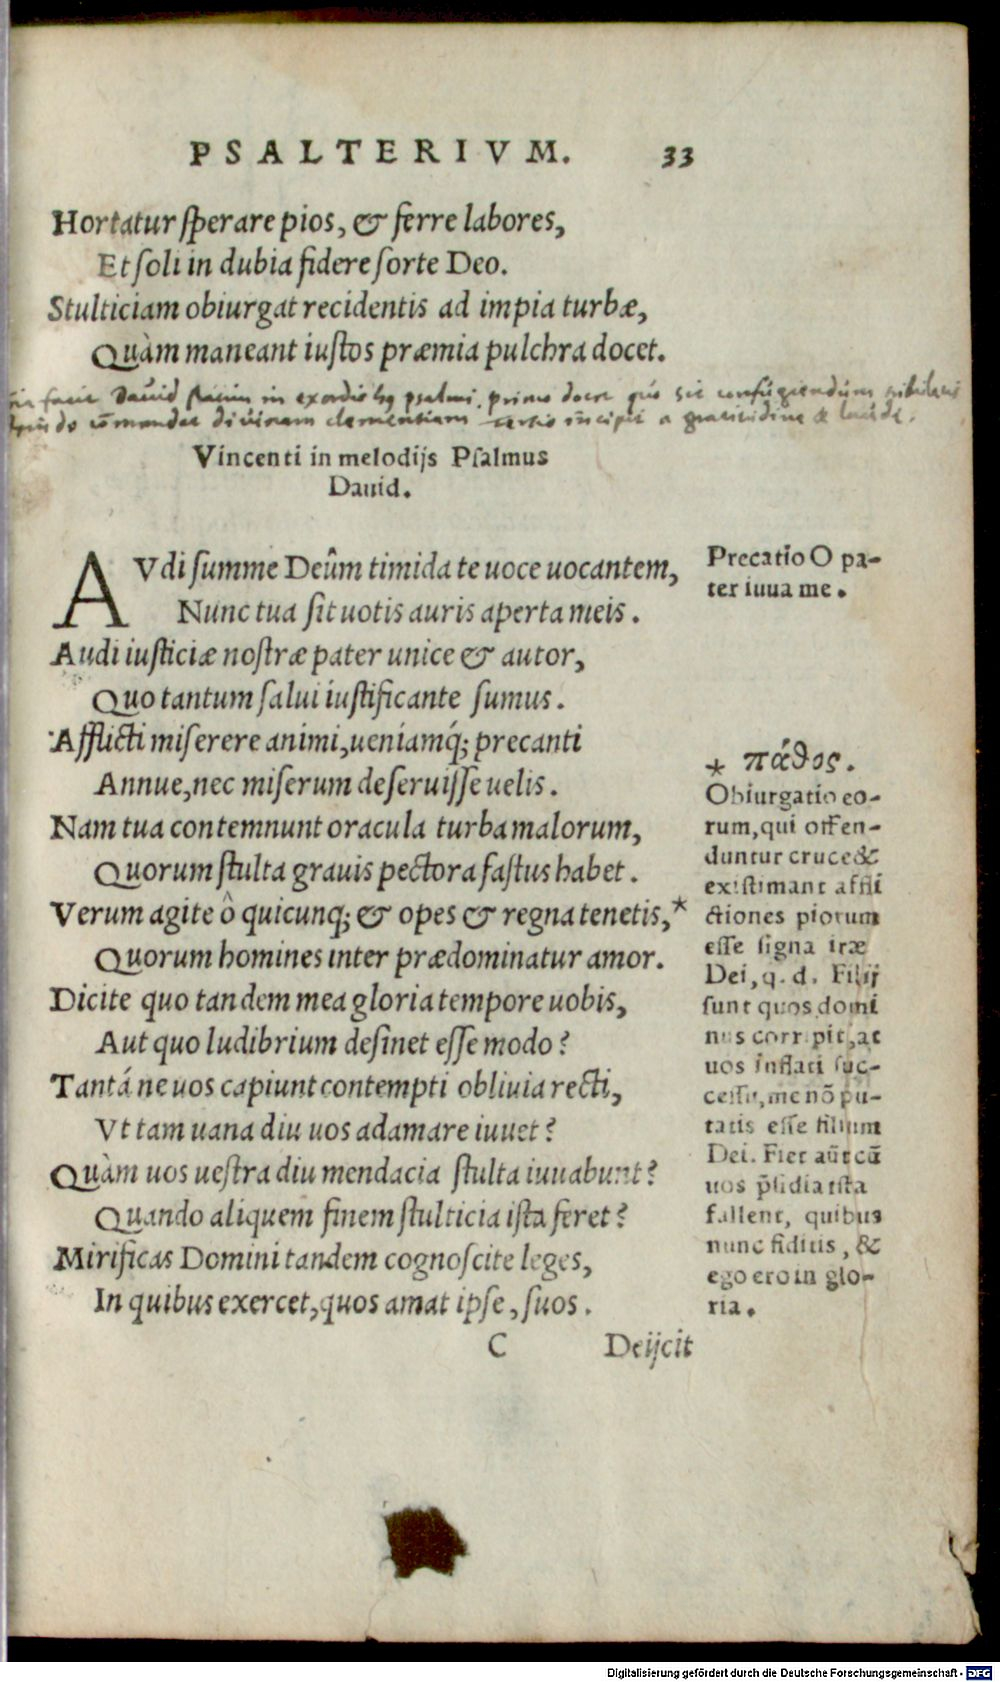 PSALTERIVM. 33
Hortatur ſperare pios, & ferre labores,
Et ſoli in dubia fidere ſorte Deo.
Stulticiam obiurgat recidentis ad impia turbæ,
Quàm maneant iuſtos præmia pulchra docet.
facit Dauid psalmi in exordio hꝫ psalmi. primo docet quo sit confugiendum
commendat diuinam clementiam tertio incipit a gratitudine & laude.
Vincenti in melodijs Pſalmus
Dauid.
AVdi ſumme Deûm timida te uoce uocantem,
Nunc tua ſit uotis auris aperta meis.
Audi iuſticiæ noſtræ pater unice & autor,
Quo tantum ſalui iuſtificante ſumus.
Afflicti miſerere animi, ueniamq́; precanti
Annue, nec miſerum deſeruiſſe uelis.
Nam tua contemnunt oracula turba malorum,
Quorum ſtulta grauis pectora faſtus habet.
Verum agite ô quicunq; & opes & regna tenetis,*
Quorum homines inter prædominatur amor.
Dicite quo tandem mea gloria tempore uobis,
Aut quo ludibrium deſinet eſſe modo?
Tantá ne uos capiunt contempti obliuia recti,
Vt tam uana diu uos adamare iuuet?
Quàm uos ueſtra diu mendacia ſtulta iuuabunt?
Quando aliquem finem ſtulticia iſta feret?
Mirificas Domini tandem cognoſcite leges,
In quibus exercet, quos amat ipſe, ſuos.
C Deijcit
Precatio O pa-
ter iuua me.
* πάθος.
Obiurgatio eo-
rum, qui offen-
duntur cruce &
exiſtimant affli
ctiones piorum
eſſe ſigna iræ
Dei, q. d. Filij
ſunt quos domi
nus corripit, at
uos inflati ſuc-
ceſſu, me nõ pu-
tatis eſſe filium
Dei. Fiet aũt cũ
uos p̃ſidia iſta
fallent, quibus
nunc fiditis, &
ego ero in glo-
ria.
Digitalisierung gefördert durch die Deutsche Forschungsgemeinschaft - DFG